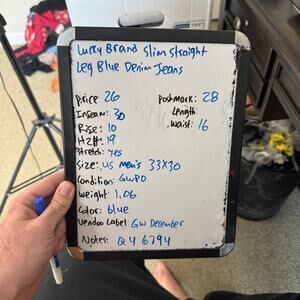 Lucky Brand Slim Straight
Leg Blue Denim Jeans
Price: 26
Poshmark: 28
Inseam: 30
Length:
Rise: 10
Waist: 16
H2H: 19
Stretch: yes
Size: US Men's 33x30
Condition: GWPO
Weight: 1.06
Color: blue
Vendoo Label: GW December
Notes: Q4 6794